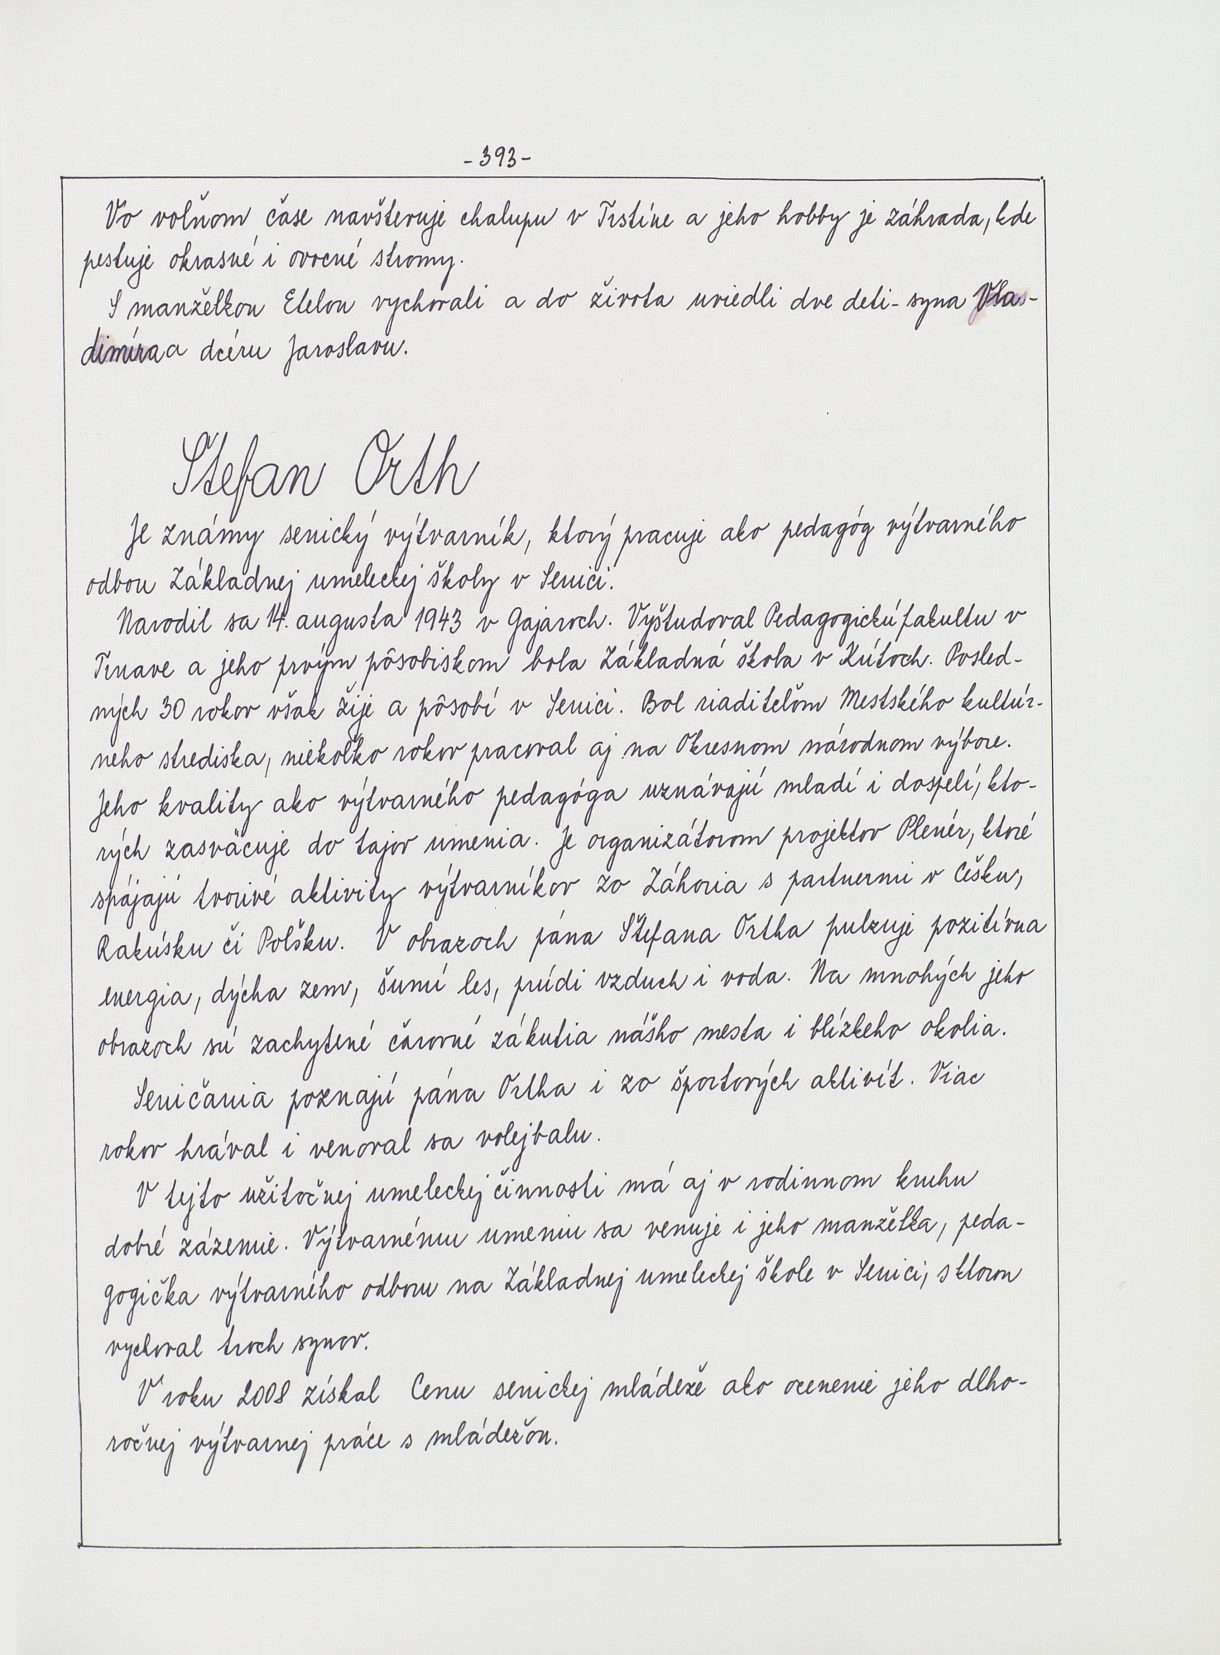 -393-
Vo voľnom čase navštevuje chalupu v Trstíne a jeho hobby je záhrada, kde
pestuje okrasné i ovocné stromy.
S manželkou Etelou vychovali a do života uviedli dve deti - syna Vla-
dimíra a dcéru Jaroslavu.
Štefan Orth
Je známy senický výtvarník, ktorý pracuje ako pedagóg výtvarného
odboru Základnej umeleckej školy v Senici.
Narodil sa 14. augusta 1943 v Gajaroch. Vyštudoval Pedagogickú fakultu v
Trnave a jeho prvým pôsobiskom bola Základná škola v Kútoch. Posled-
ných 30 rokov však žije a pôsobí v Senici. Bol riaditeľom Mestského kultúr-
neho strediska, niekoľko rokov pracoval aj na Okresnom národnom výbore.
Jeho kvality ako výtvarného pedagóga uznávajú mladí i dospelí, kto-
rých zasväcuje do tajov umenia. Je organizátorom projektov Plenér, ktoré
spájajú tvorivé aktivity výtvarníkov zo Záhoria s partnermi v Česku,
Rakúsku či Poľsku. V obrazoch pána Štefana Ortha pulzuje pozitívna
energia, dýcha zem, šumí les, prúdi vzduch i voda. Na mnohých jeho
obrazoch sú zachytené čarovné zákutia nášho mesta i blízkeho okolia.
Seničania poznajú pána Ortha i zo športových aktivít. Viac
rokov hrával i venoval sa volejbalu.
V tejto užitočnej umeleckej činnosti má aj v rodinnom kruhu
dobré zázemie. Výtvarnému umeniu sa venuje i jeho manželka, peda-
gogička výtvarného odboru na Základnej umeleckej škole v Senici, s ktorou
vychoval troch synov.
V roku 2008 získal Cenu senickej mládeže ako ocenenie jeho dlho-
ročnej výtvarnej práce s mládežou.